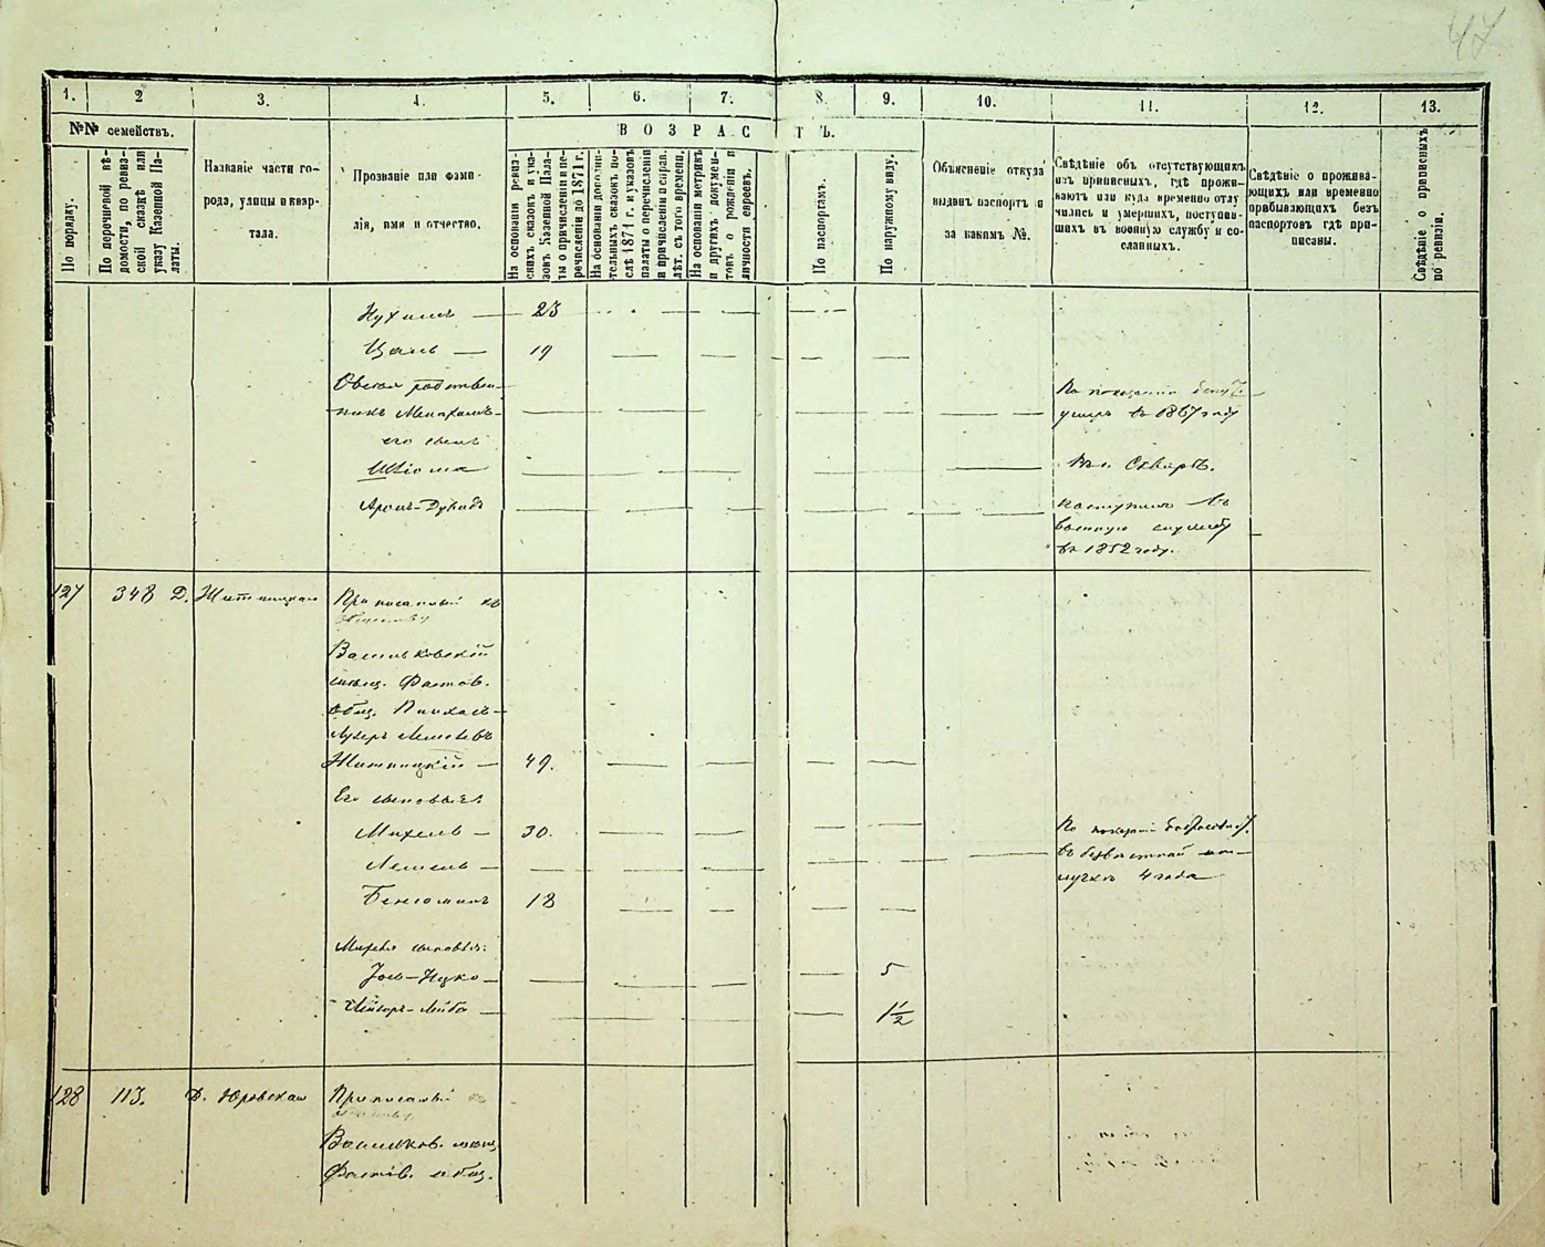 47
1. 2 3. 4. 5. 6. 7. 8. 9. 10. 11. 12. 13.
№№ семействъ.
ВОЗРАСТЪ.
По порядку.
По перечневой вѣ-
домости, по ревиз-
ской сказкѣ или
указу Казенной Па-
латы.
Названіе части го-
рода, улицы и квар-
тала.
Прозваніе или фами-
лія, имя и отчество.
На основаніи ревиз-
скихъ сказокъ и ука-
зовъ Казенной Пала-
ты о причисленіи и пе-
речисленіи до 1871 г.
На основаніи дополни-
тельныхъ сказокъ по-
слѣ 1871 г. и указовъ
палаты о перечисленіи
и причисленіи и справ.
лѣт. съ того времени.
На основаніи метрикъ
и другихъ докумен-
товъ о рожденіи и
личности евреевъ.
По паспортамъ.
По наружному виду.
Объясненіе откуда
выданъ паспортъ и
за какимъ №.
Свѣдѣніе объ отсутствующихъ
изъ приписныхъ, гдѣ прожи-
ваютъ или куда временно отлу
чились и умершихъ, поступив-
шихъ въ военную службу и со-
сланныхъ.
Свѣдѣніе о прожива-
ющихъ или временно
прибывающихъ безъ
паспортовъ гдѣ при-
писаны.
Свѣдѣніе о приписныхъ
по ревизіи.
Нухимъ — 23
Цаль — 19
Овсея родствен-
никъ Менахемъ-
умеръ въ 1867 году
его сынъ
Шліома
въ м. Сквирѣ.
Аронъ-Дувидъ
поступилъ въ
военную службу
въ 1852 году.
127 348 Д. Житницкаго Приписанный къ
обществу
Васильковскій
мѣщ. Фастов.
общ. Пинхасъ-
Лейбовъ
Житницкій — 49.
Его сыновья:
Михель — 30.
въ безвѣстной от-
лучкѣ 4 года
Лейзеръ —
Беньоминъ 18
Михеля сыновья:
Іось-Ицко — 5
Лейба — 1½
128 113. Д. Юровскаго Приписанный къ
обществу
Васильков. мѣщ.
Фастов. общ.